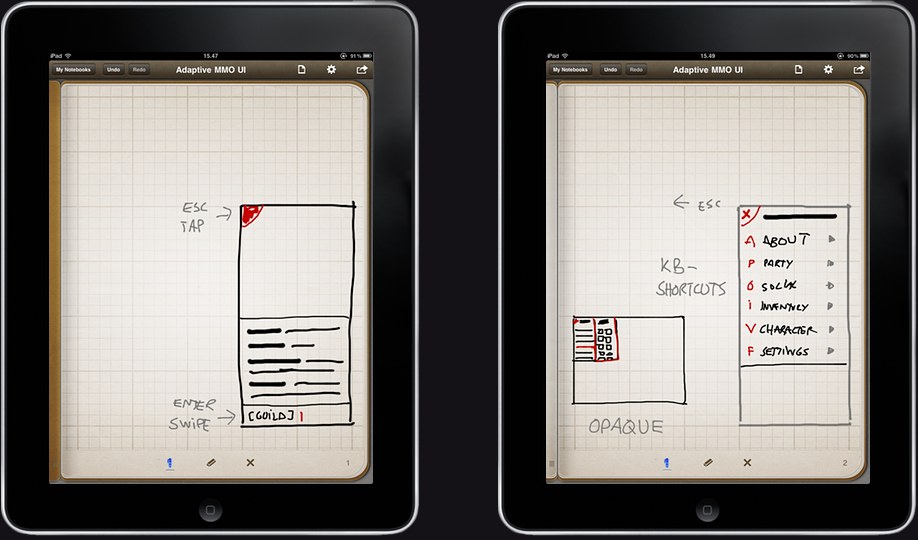 iPad 15.47 91%
My Notebooks Undo Redo Adaptive MMO UI
ESC
TAP
ENTER
SWIPE
[GUILD]
1
iPad 15.49 90%
My Notebooks Undo Redo Adaptive MMO UI
ESC
X
A ABOUT
P PARTY
O SOCIAL
i INVENTORY
V CHARACTER
F SETTINGS
KB-
SHORTCUTS
OPAQUE
2